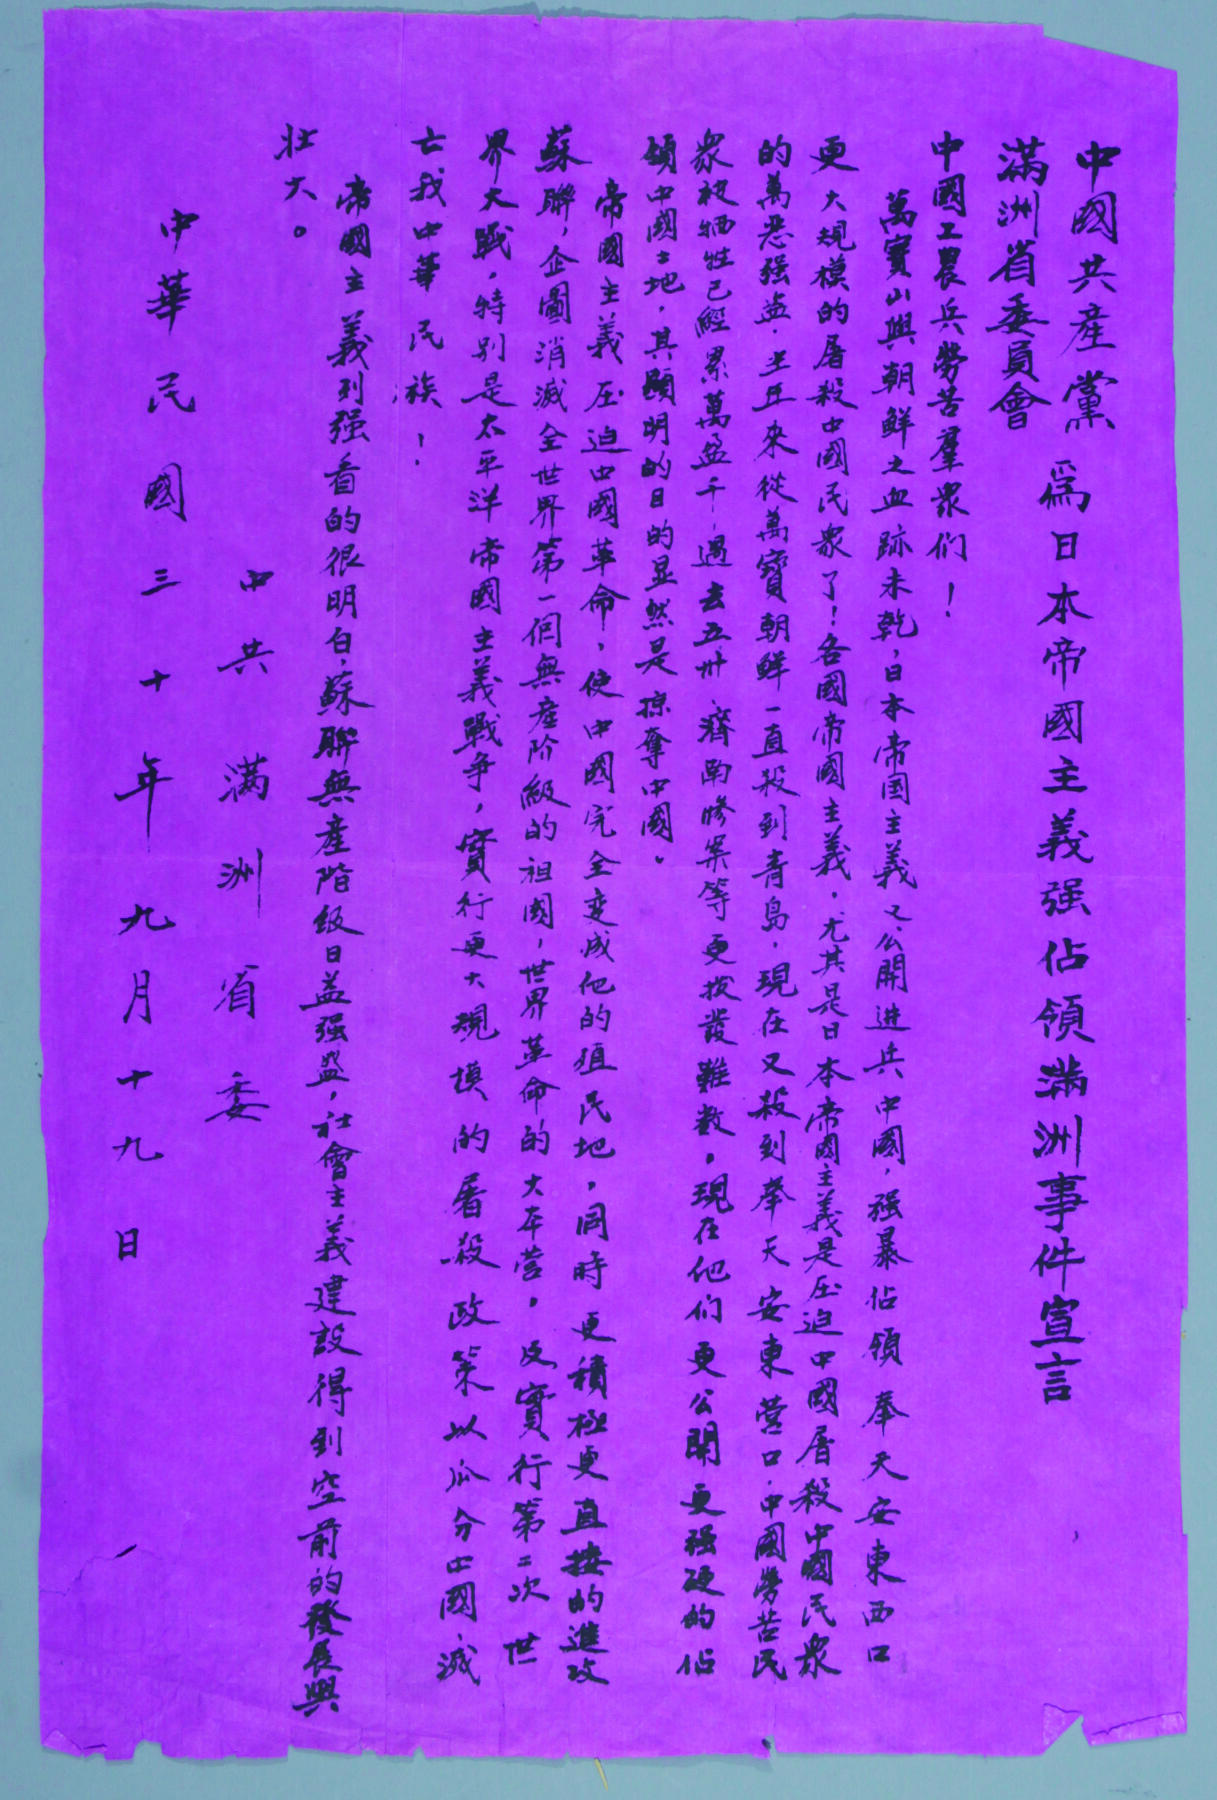 中國共產黨
滿洲省委員會
爲日本帝國主義强佔領滿洲事件宣言
中國工農兵勞苦羣衆们！
萬寶山與朝鮮之血跡未乾，日本帝国主義又公開進兵中國，强暴佔領奉天安東西口
更大規模的屠殺中國民衆了！各國帝國主義，尤其是日本帝國主義是压迫中國屠殺中國民衆
的萬恶强盗，並且來從萬寶朝鮮一直殺到青島，現在又殺到奉天安東營口，中國勞苦民
衆被牺牲已經累萬盈千，過去五卅、濟南慘案等更拨發難数，現在他们更公開更强硬的佔
領中國土地，其顯明的目的显然是掠奪中國。
帝國主義压迫中國革命，使中國完全变成他的殖民地，同時更積極更直接的進攻
蘇聯，企圖消滅全世界第一個無産阶級的祖國，世界革命的大本营，及實行第二次世
界大戰，特别是太平洋帝國主義戰争，實行更大規模的屠殺政策以瓜分中國，滅
亡我中華民族！
帝國主義列强看的很明白，蘇聯無產階級日益强盛，社會主義建設得到空前的發展與
壮大。
中共滿洲省委
中華民國三十年九月十九日